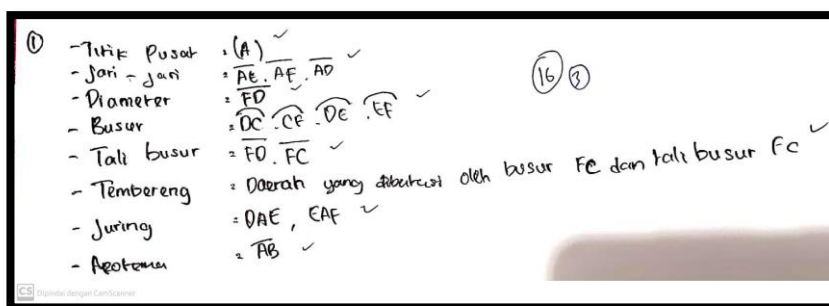 ① -Titik Pusat : (A) ✓
- Jari - Jari : A̅E̅, A̅F̅, A̅D̅ ✓
16 3
- Diameter = F̅D̅ ✓
- Busur = DC, CF, DE, EF ✓
- Tali busur = F̅D̅, F̅C̅ ✓
- Tembereng : Daerah yang dibatasi oleh busur FC dan tali busur FC ✓
- Juring = DAE, EAF ✓
- Apotema = A̅B̅ ✓
CS Dipindai dengan CamScanner